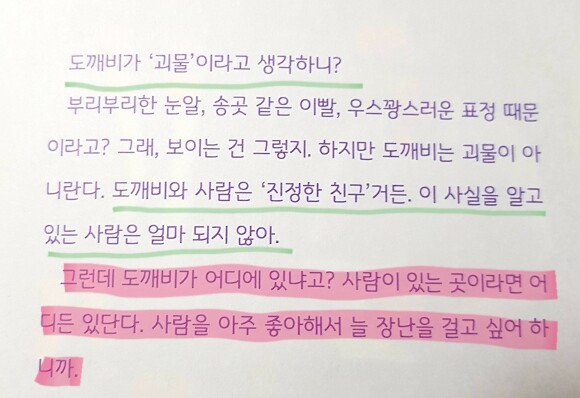 도깨비가 ‘괴물’이라고 생각하니?
부리부리한 눈알, 송곳 같은 이빨, 우스꽝스러운 표정 때문
이라고? 그래, 보이는 건 그렇지. 하지만 도깨비는 괴물이 아
니란다. 도깨비와 사람은 ‘진정한 친구’거든. 이 사실을 알고
있는 사람은 얼마 되지 않아.
그런데 도깨비가 어디에 있냐고? 사람이 있는 곳이라면 어
디든 있단다. 사람을 아주 좋아해서 늘 장난을 걸고 싶어 하
니까.